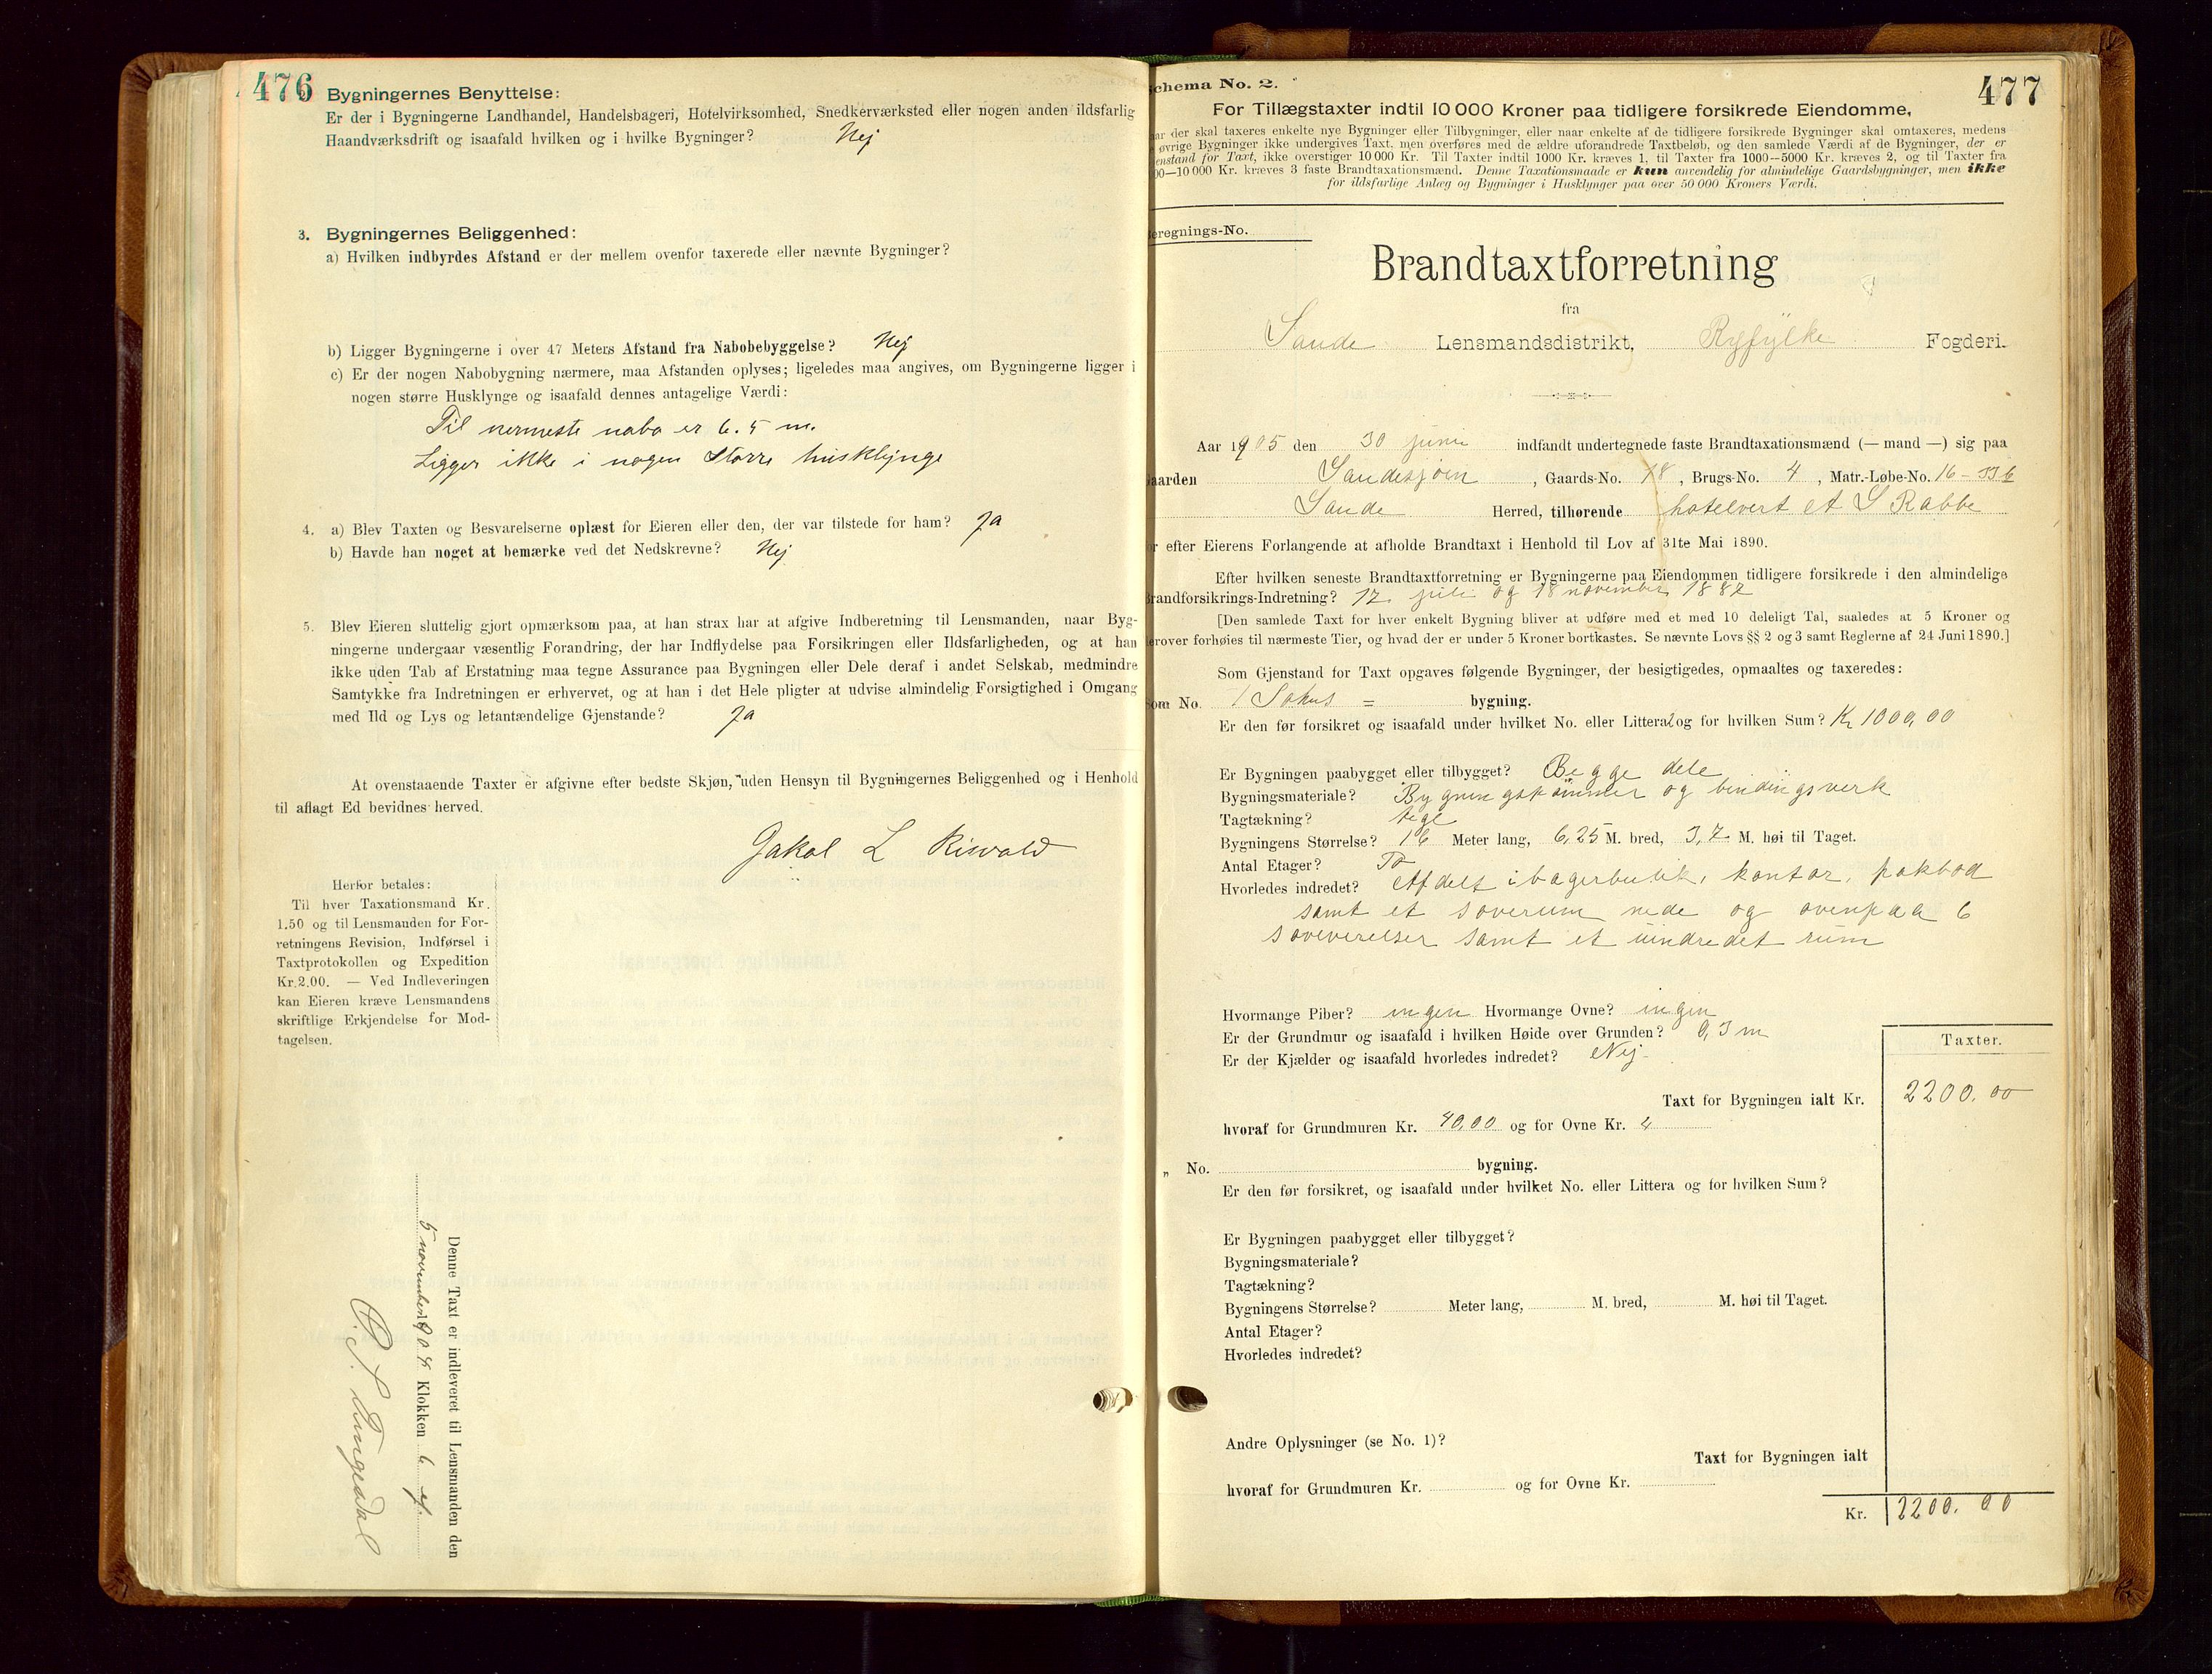 476
2. Bygningernes Benyttelse:
Er der i Bygningerne Landhandel, Handelsbageri, Hotelvirksomhed, Snedkerværksted eller nogen anden ildsfarlig
Haandværksdrift og isaafald hvilken og i hvilke Bygninger? Nej
3. Bygningernes Beliggenhed:
a) Hvilken indbyrdes Afstand er der mellem ovenfor taxerede eller nævnte Bygninger?
b) Ligger Bygningerne i over 47 Meters Afstand fra Nabobebyggelse? Nej
c) Er der nogen Nabobygning nærmere, maa Afstanden oplyses; ligeledes maa angives, om Bygningerne ligger i
nogen større Husklynge og isaafald dennes antagelige Værdi:
Til nermeste nabo er 6.5 m.
Ligger ikke i nogen Storre husklynge
4. a) Blev Taxten og Besvarelserne oplæst for Eieren eller den, der var tilstede for ham? Ja
b) Havde han noget at bemærke ved det Nedskrevne? Nej
5. Blev Eieren sluttelig gjort opmærksom paa, at han strax har at afgive Indberetning til Lensmanden, naar Byg-
ningerne undergaar væsentlig Forandring, der har Indflydelse paa Forsikringen eller Ildsfarligheden, og at han
ikke uden Tab af Erstatning maa tegne Assurance paa Bygningen eller Dele deraf i andet Selskab, medmindre
Samtykke fra Indretningen er erhvervet, og at han i det Hele pligter at udvise almindelig Forsigtighed i Omgang
med Ild og Lys og letantændelige Gjenstande? Ja
At ovenstaaende Taxter er afgivne efter bedste Skjøn, uden Hensyn til Bygningernes Beliggenhed og i Henhold
til aflagt Ed bevidnes herved.
Jakol L Risvold
Herfor betales:
Til hver Taxationsmand Kr.
1.50 og til Lensmanden for For-
retningens Revision, Indførsel i
Taxtprotokollen og Expedition
Kr. 2.00. — Ved Indleveringen
kan Eieren kræve Lensmandens
skriftlige Erkjendelse for Mod-
tagelsen.
Denne Taxt er indleveret til Lensmanden den
5 november 1904 Klokken 6 ef.
477
chema No. 2.
For Tillægstaxter indtil 10 000 Kroner paa tidligere forsikrede Eiendomme,
ar der skal taxeres enkelte nye Bygninger eller Tilbygninger, eller naar enkelte af de tidligere forsikrede Bygninger skal omtaxeres, medens
øvrige Bygninger ikke undergives Taxt, men overføres med de ældre uforandrede Taxtbeløb, og den samlede Værdi af de Bygninger, der er
enstand for Taxt, ikke overstiger 10 000 Kr. Til Taxter indtil 1000 Kr. kræves 1, til Taxter fra 1000—5000 Kr. kræves 2, og til Taxter fra
00—10 000 Kr. kræves 3 faste Brandtaxationsmænd. Denne Taxationsmaade er kun anvendelig for almindelige Gaardsbygninger, men ikke
for ildsfarlige Anlæg og Bygninger i Husklynger paa over 50 000 Kroners Værdi.
eregnings-No.
Brandtaxtforretning
fra
Sande Lensmandsdistrikt, Ryfylke Fogderi.
Aar 1905 den 30 juni indfandt undertegnede faste Brandtaxationsmænd (— mand —) sig paa
aarden Sandesjøen, Gaards-No. 18, Brugs-No. 4, Matr.-Løbe-No. 16 – 33 b
Sande Herred, tilhørende hotelvert et S Rabbe
r efter Eierens Forlangende at afholde Brandtaxt i Henhold til Lov af 31te Mai 1890.
Efter hvilken seneste Brandtaxtforretning er Bygningerne paa Eiendommen tidligere forsikrede i den almindelige
randforsikrings-Indretning? 17 juli og 18 november 1882
[Den samlede Taxt for hver enkelt Bygning bliver at udføre med et med 10 deleligt Tal, saaledes at 5 Kroner og
erover forhøies til nærmeste Tier, og hvad der er under 5 Kroner bortkastes. Se nævnte Lovs §§ 2 og 3 samt Reglerne af 24 Juni 1890.]
Som Gjenstand for Taxt opgaves følgende Bygninger, der besigtigedes, opmaaltes og taxeredes:
om No. 1 Søhus = bygning.
Er den før forsikret og isaafald under hvilket No. eller Littera og for hvilken Sum? Kr 1000,00
Er Bygningen paabygget eller tilbygget? Begge dele
Bygningsmateriale? Bygningstømmer og bindingsverk
Tagtækning? tegl
Bygningens Størrelse? 16 Meter lang, 6,25 M. bred, 3,7 M. høi til Taget.
Antal Etager? To
Hvorledes indredet? Afdelt i bagerbutik, kontor, pakbod
samt et soverum nede og ovenpaa 6
soveverelser samt et uindredet rum
Hvormange Piber? ingen Hvormange Ovne? ingen
Er der Grundmur og isaafald i hvilken Høide over Grunden? 0,3 m
Er der Kjælder og isaafald hvorledes indredet? Nej
Taxter.
Taxt for Bygningen ialt Kr. 2200.00
hvoraf for Grundmuren Kr. 40,00 og for Ovne Kr.
„ No. bygning.
Er den før forsikret, og isaafald under hvilket No. eller Littera og for hvilken Sum?
Er Bygningen paabygget eller tilbygget?
Bygningsmateriale?
Tagtækning?
Bygningens Størrelse? Meter lang, M. bred, M. høi til Taget.
Antal Etager?
Hvorledes indredet?
Andre Oplysninger (se No. 1)?
Taxt for Bygningen ialt
hvoraf for Grundmuren Kr. og for Ovne Kr.
Kr. 2200.00